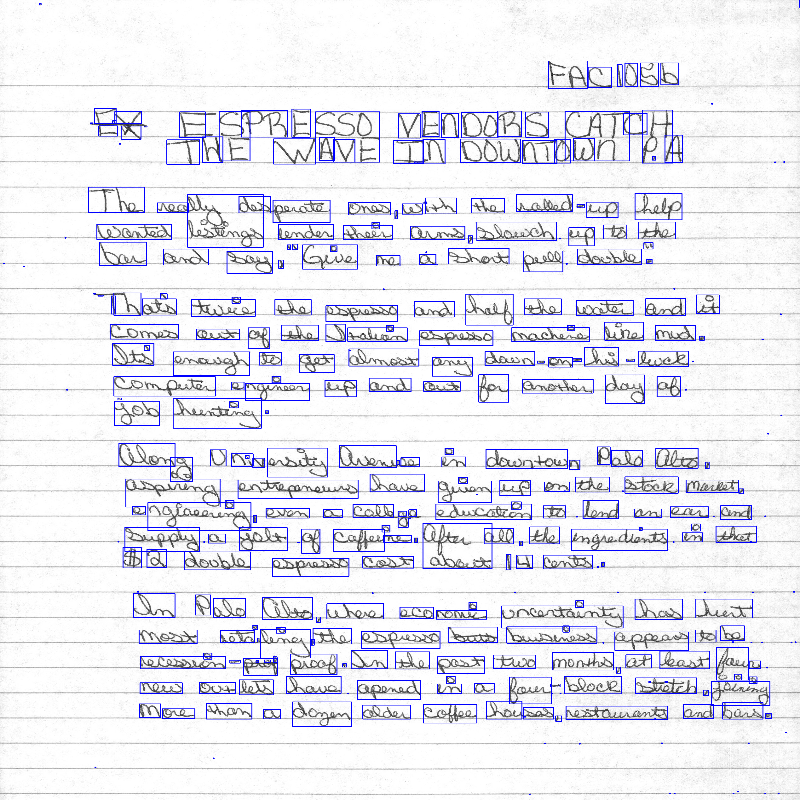 FAC1056
Ex ESPRESSO VENDORS CATCH
THE WAVE IN DOWNTOWN P.A
The really desperate ones, with the rolled-up help
wanted listings under their arms, slouch up to the
bar and say, "Give me a short pull double".
Thats twice the espresso and half the water and it
comes out of the Italian espresso machine like mud.
Its enough to get almost any down-on-his-luck
computer engineer up and out for another day of
job hunting.
Along University Avenue in downtown Palo Alto,
aspiring entrepreneurs have given up on the stock market,
engineering, even a college education to lend an ear and
supply a jolt of caffeine. After all, the ingredients in that
$2 double espresso cost about 14 cents.
In Palo Alto, where economic uncertainty has hurt
most retailing, the espresso business appears to be
recession-proof. In the past two months, at least four
new outlets have opened in a four-block stretch, joining
more than a dozen older coffee houses, restaurants and bars.